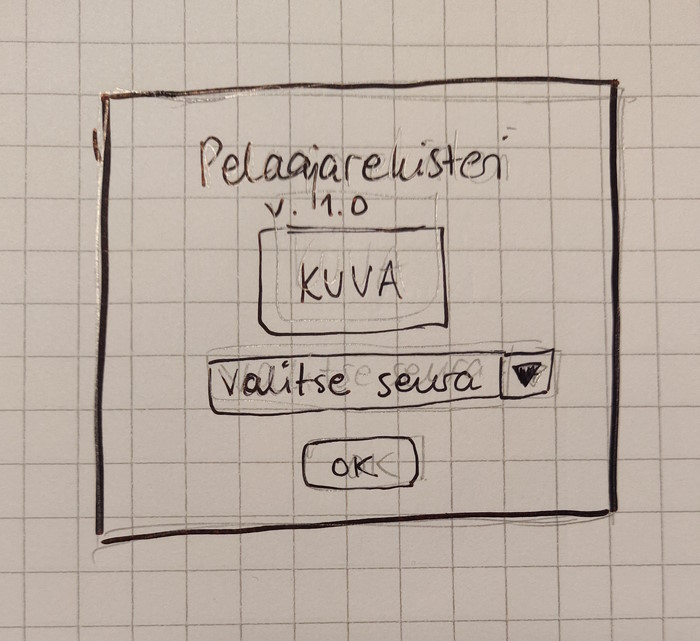 Pelaajarekisteri
v. 1.0
KUVA
Valitse seura
OK